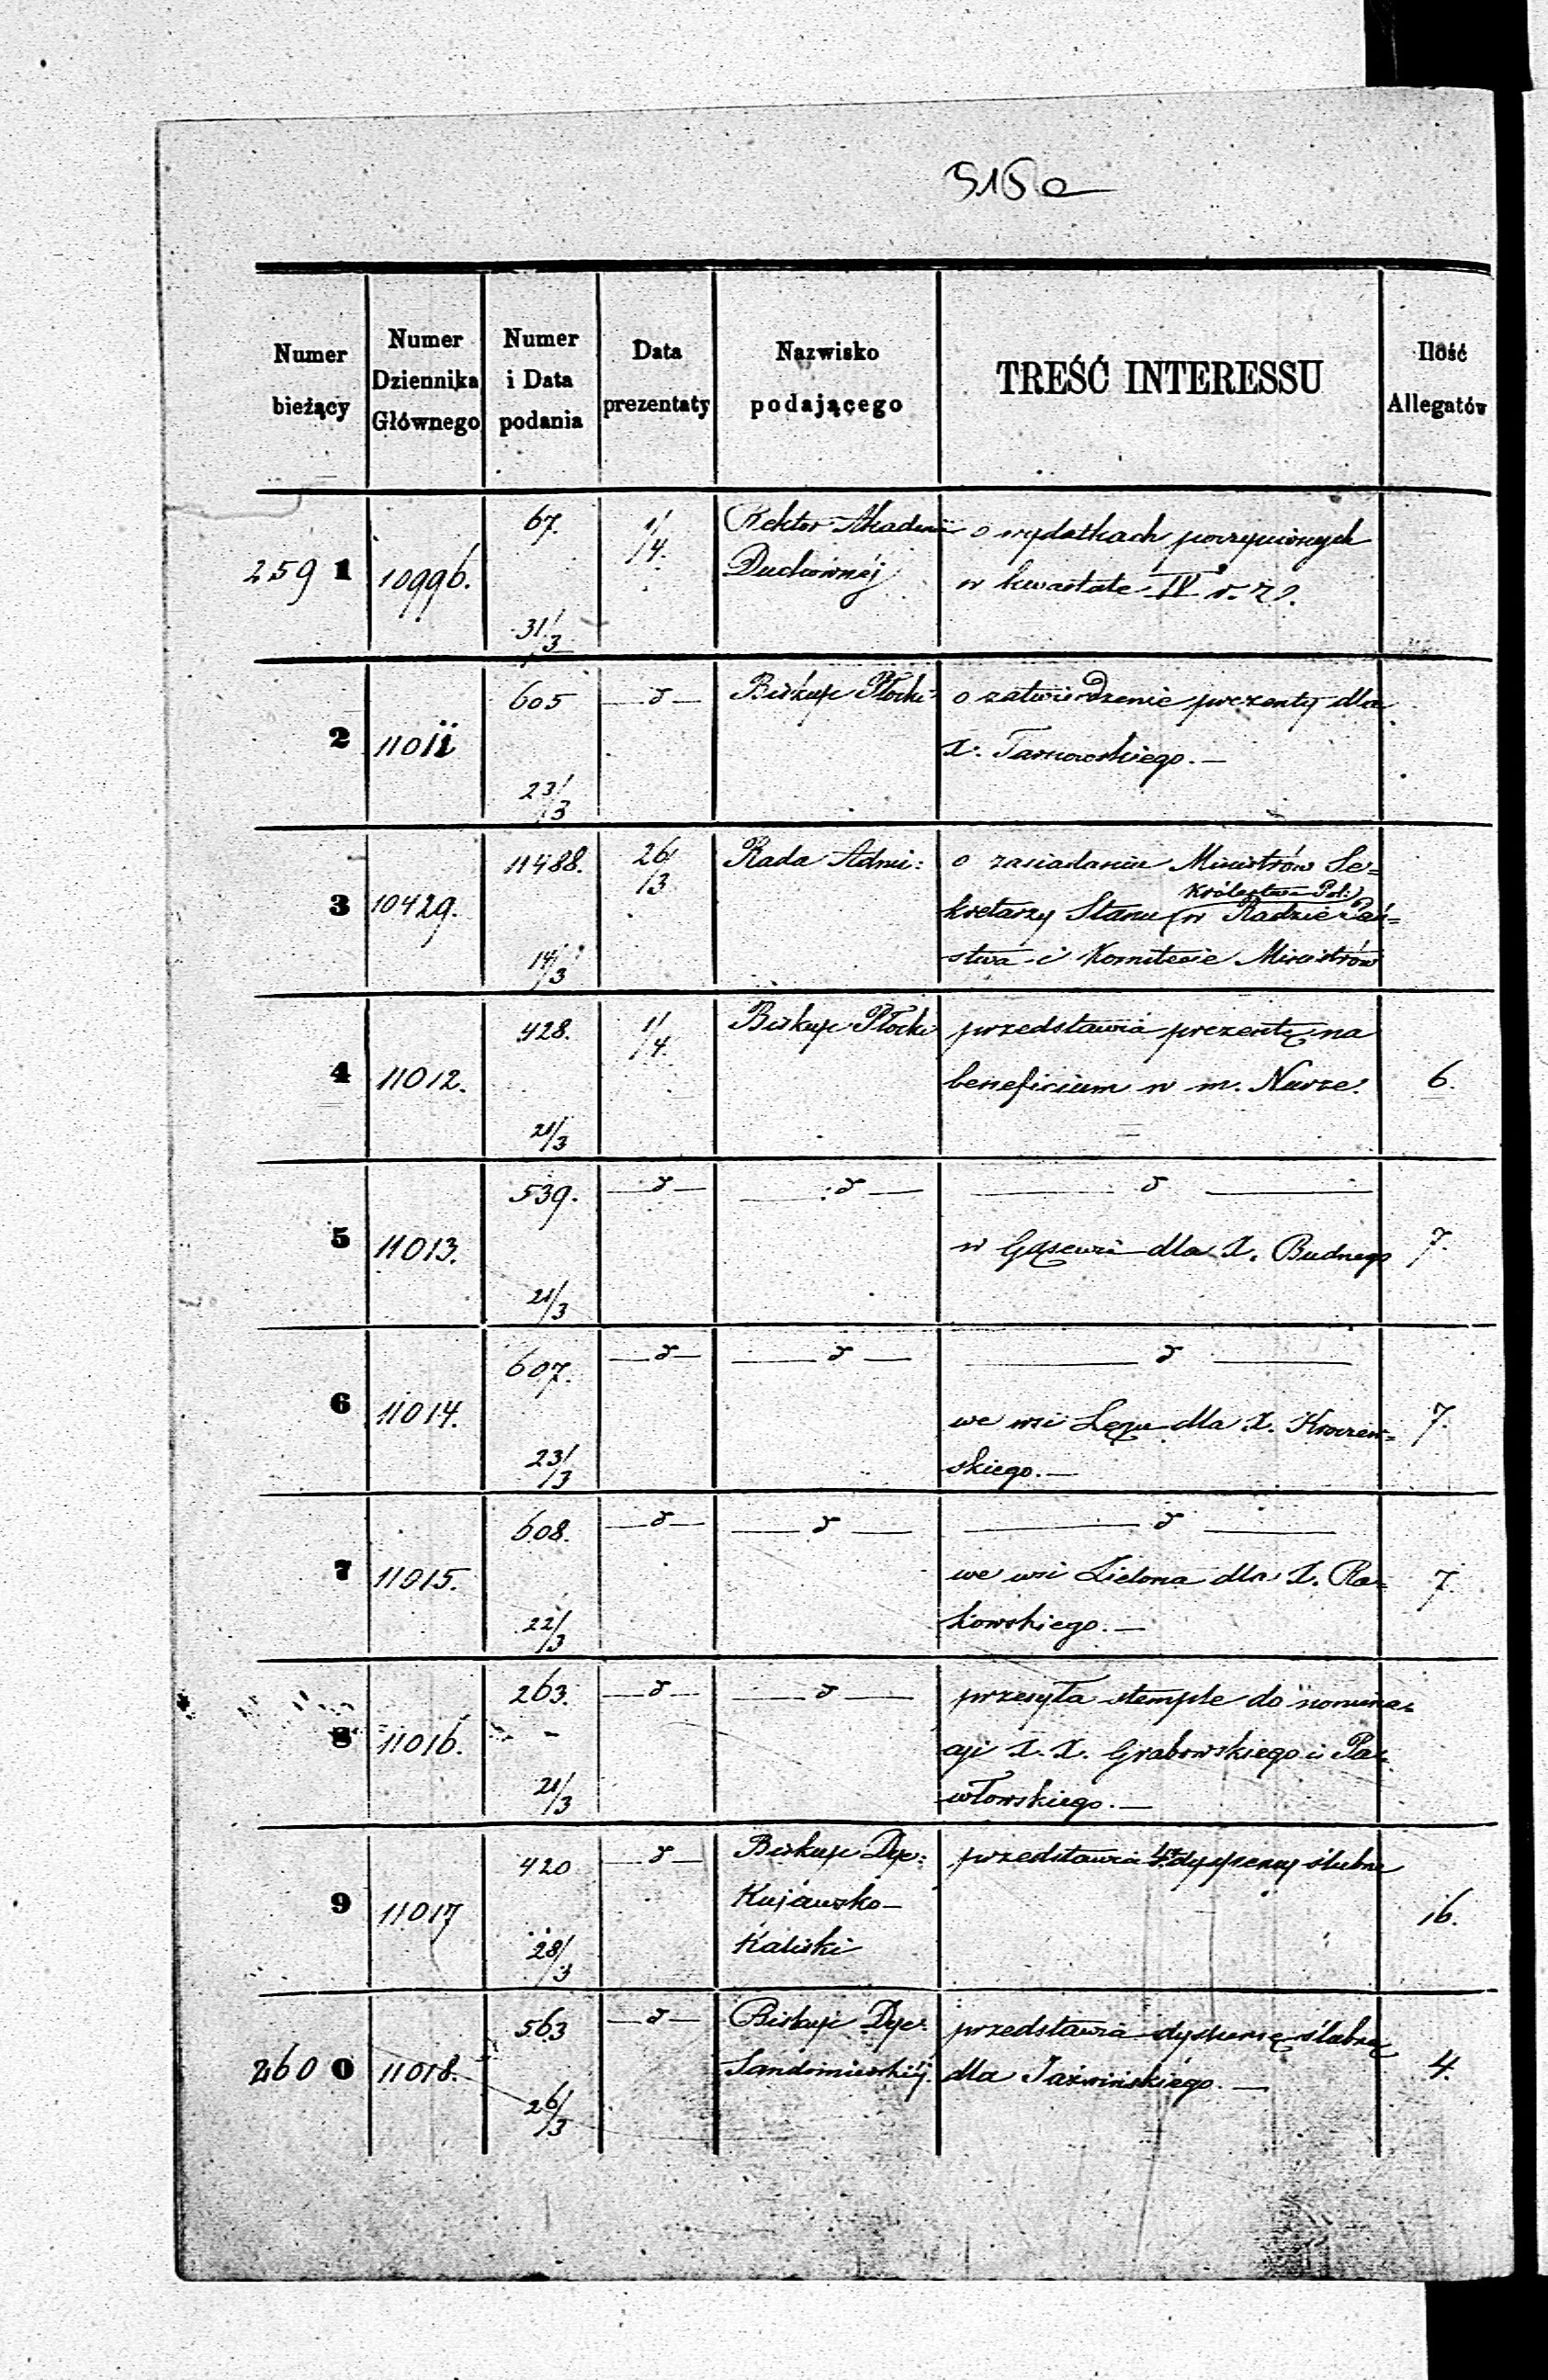 515a
Numer bieżący
Numer Dziennika Głównego
Numer i Data podania
Data prezentaty
Nazwisko podającego
TREŚĆ INTERESSU
Ilość Allegatów
2591
10996.
67.
31/3
1/4.
Rektor Akademii
Duchównéj
o wydatkach poczynionych
w kwartale IV r. z.
2
11011
605
23/3
—d—
Biskup Płocki
o zatwierdzenie prezenty dla
X. Tarnowskiego.—
3
10429.
11488.
14/3
26/3
Rada Admi:
o zasiadaniu Ministrów Se=
Królestwa Pol:
kretarzy Stanu w Radzie Pań=
stwa i Komitecie Ministrów
4
11012.
428.
21/3
1/4.
Biskup Płocki
przedstawia prezentę na
beneficium w m. Nurze.
6.
5
11013.
539.
21/3
—d—
—d—
—d—
w Gąsewie dla X. Budnego
7.
6
11014.
607.
23/3
—d—
—d—
—d—
we wsi Łęgu dla X.
skiego.—
7.
7
11015.
608.
22/3
—d—
—d—
—d—
we wsi Zielona dla X. Ra=
kowskiego.—
7
8
11016.
263.
21/3
—d—
—d—
przesyła stemple do nomina=
cyi X.X. Grabowskiego i Pa=
włowskiego.—
9
11017
420
28/3
—d—
Biskup Dye:
Kujawsko—
Kaliski
przedstawia dyspensy ślubne
16.
2600
11018.
563
26/3
—d—
Biskup Dye:
Sandomierskiéj.
przedstawia dyspensę ślubną
dla Jaźwińskiego.—
4.